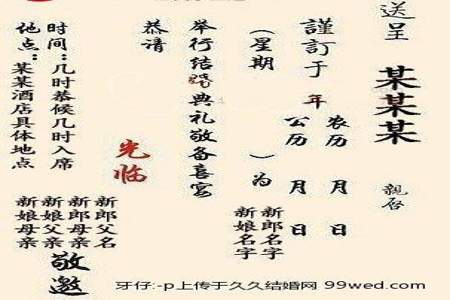 送呈
某某某
親启
謹訂于 年
农历 月 日
公历 月 日
（星期 ）为
新郎名字
新娘名字
举行结婚典礼敬备喜宴
恭请
光临
新郎父名
新郎母亲
新娘父亲
新娘母亲
敬邀
时间：几时恭候几时入席
地点：某某酒店具体地点
牙仔:-p上传于久久结婚网 99wed.com